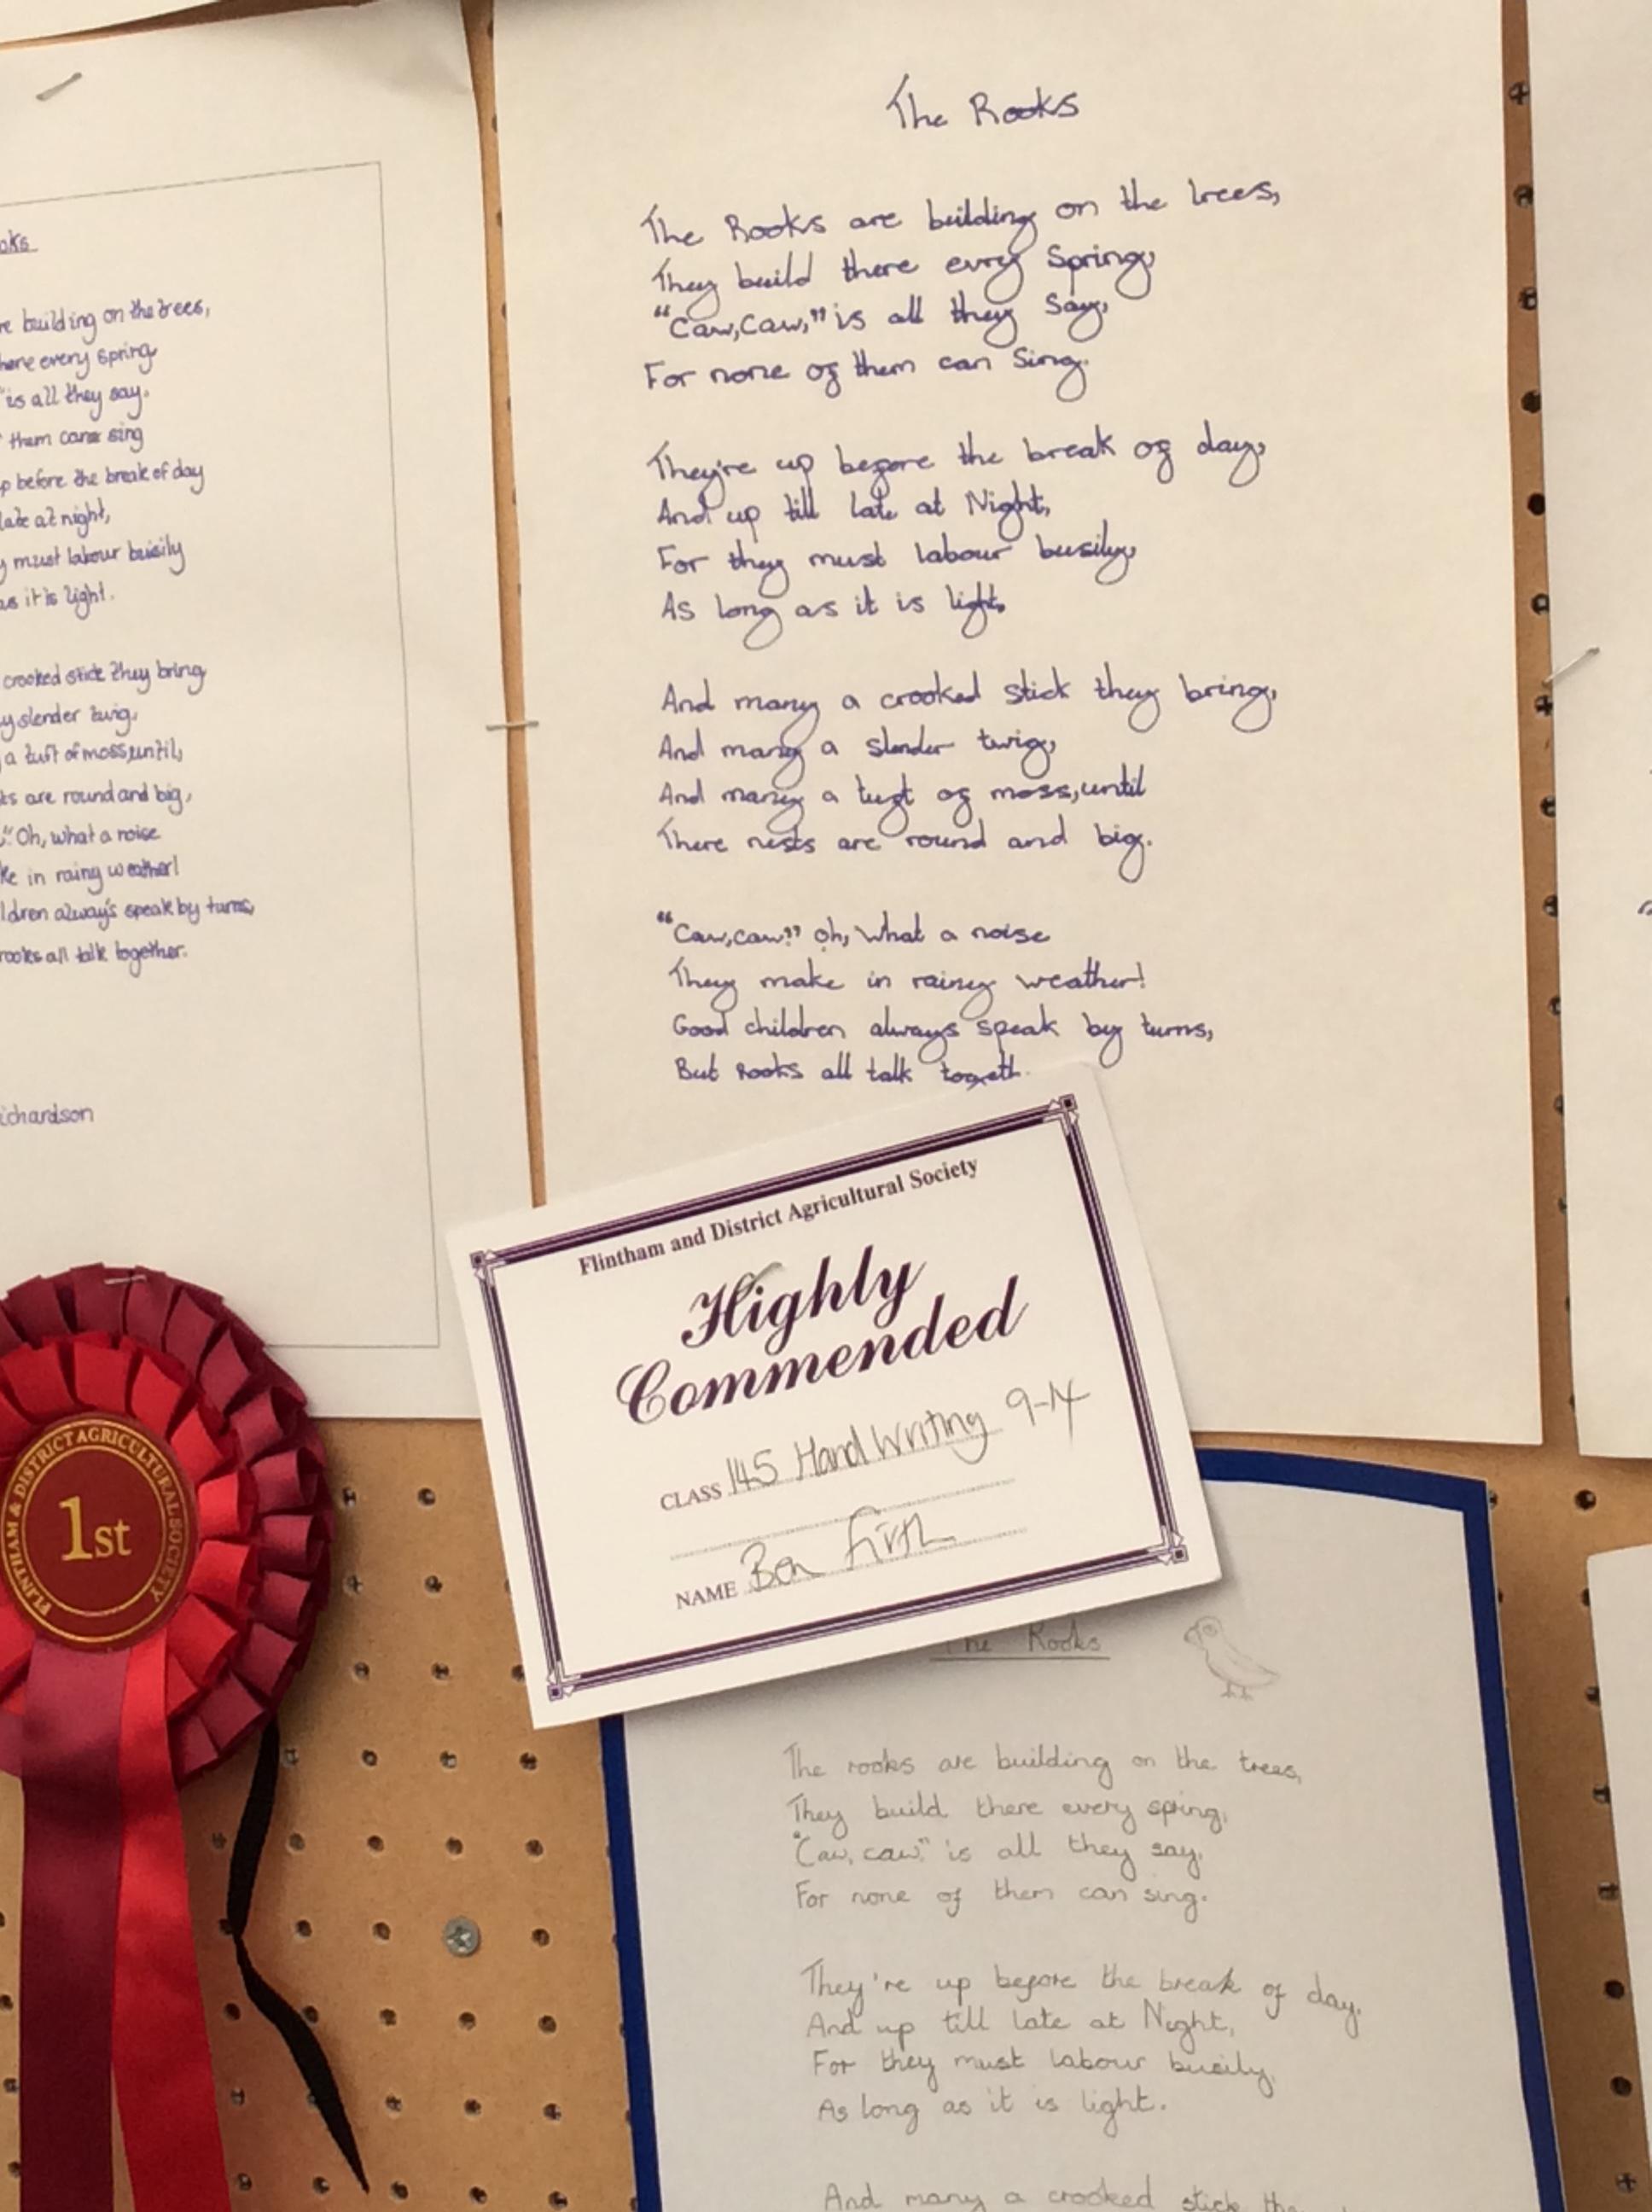 oks
re building on the trees,
here every spring
" is all they say.
them cane sing
p before the break of day
late at night,
y must labour busily
as it is light.
crooked stick they bring
y slender twig,
a tuft of moss, until,
ts are round and big,
." Oh, what a noise
ke in rainy weather!
ldren always speak by turns,
rooks all talk together.
ichardson
The Rooks
The Rooks are building on the trees,
They build there evry Spring,
"Caw,Caw," is all they Say,
For none of them can Sing.
They're up before the break of day,
And up till late at Night,
For they must labour busily,
As long as it is light.
And many a crooked stick they bring,
And many a slender twig,
And many a tuft of moss, until
There nests are round and big.
"Caw,caw!" oh, what a noise
They make in rainey weather!
Good children always speak by turns,
But Rooks all talk togeth
Flintham and District Agricultural Society
Highly
Commended
CLASS 145 Hand Writing 9-14
NAME Ben Firth
FLINTHAM & DISTRICT AGRICULTURAL SOCIETY
1st
The Rooks
The rooks are building on the trees,
They build there every spring,
"Caw, caw," is all they say,
For none of them can sing.
They're up before the break of day,
And up till late at Night,
For they must labour busily,
As long as it is light.
And many a crooked stick the